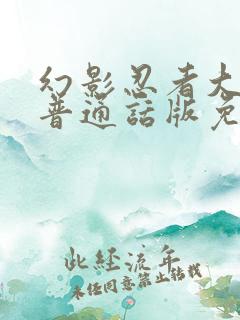 幻影忍者大
普通話版免
此经流年
未经同意禁止转载